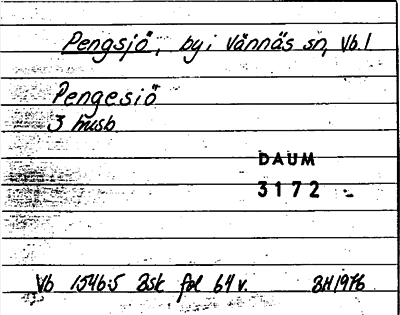 Pengsjö, by i Vännäs sn, Vb.l
Pengesiö
3 husb
DAUM
3172
Vb 1546:5 Åsk fol 64 v. BH 1976